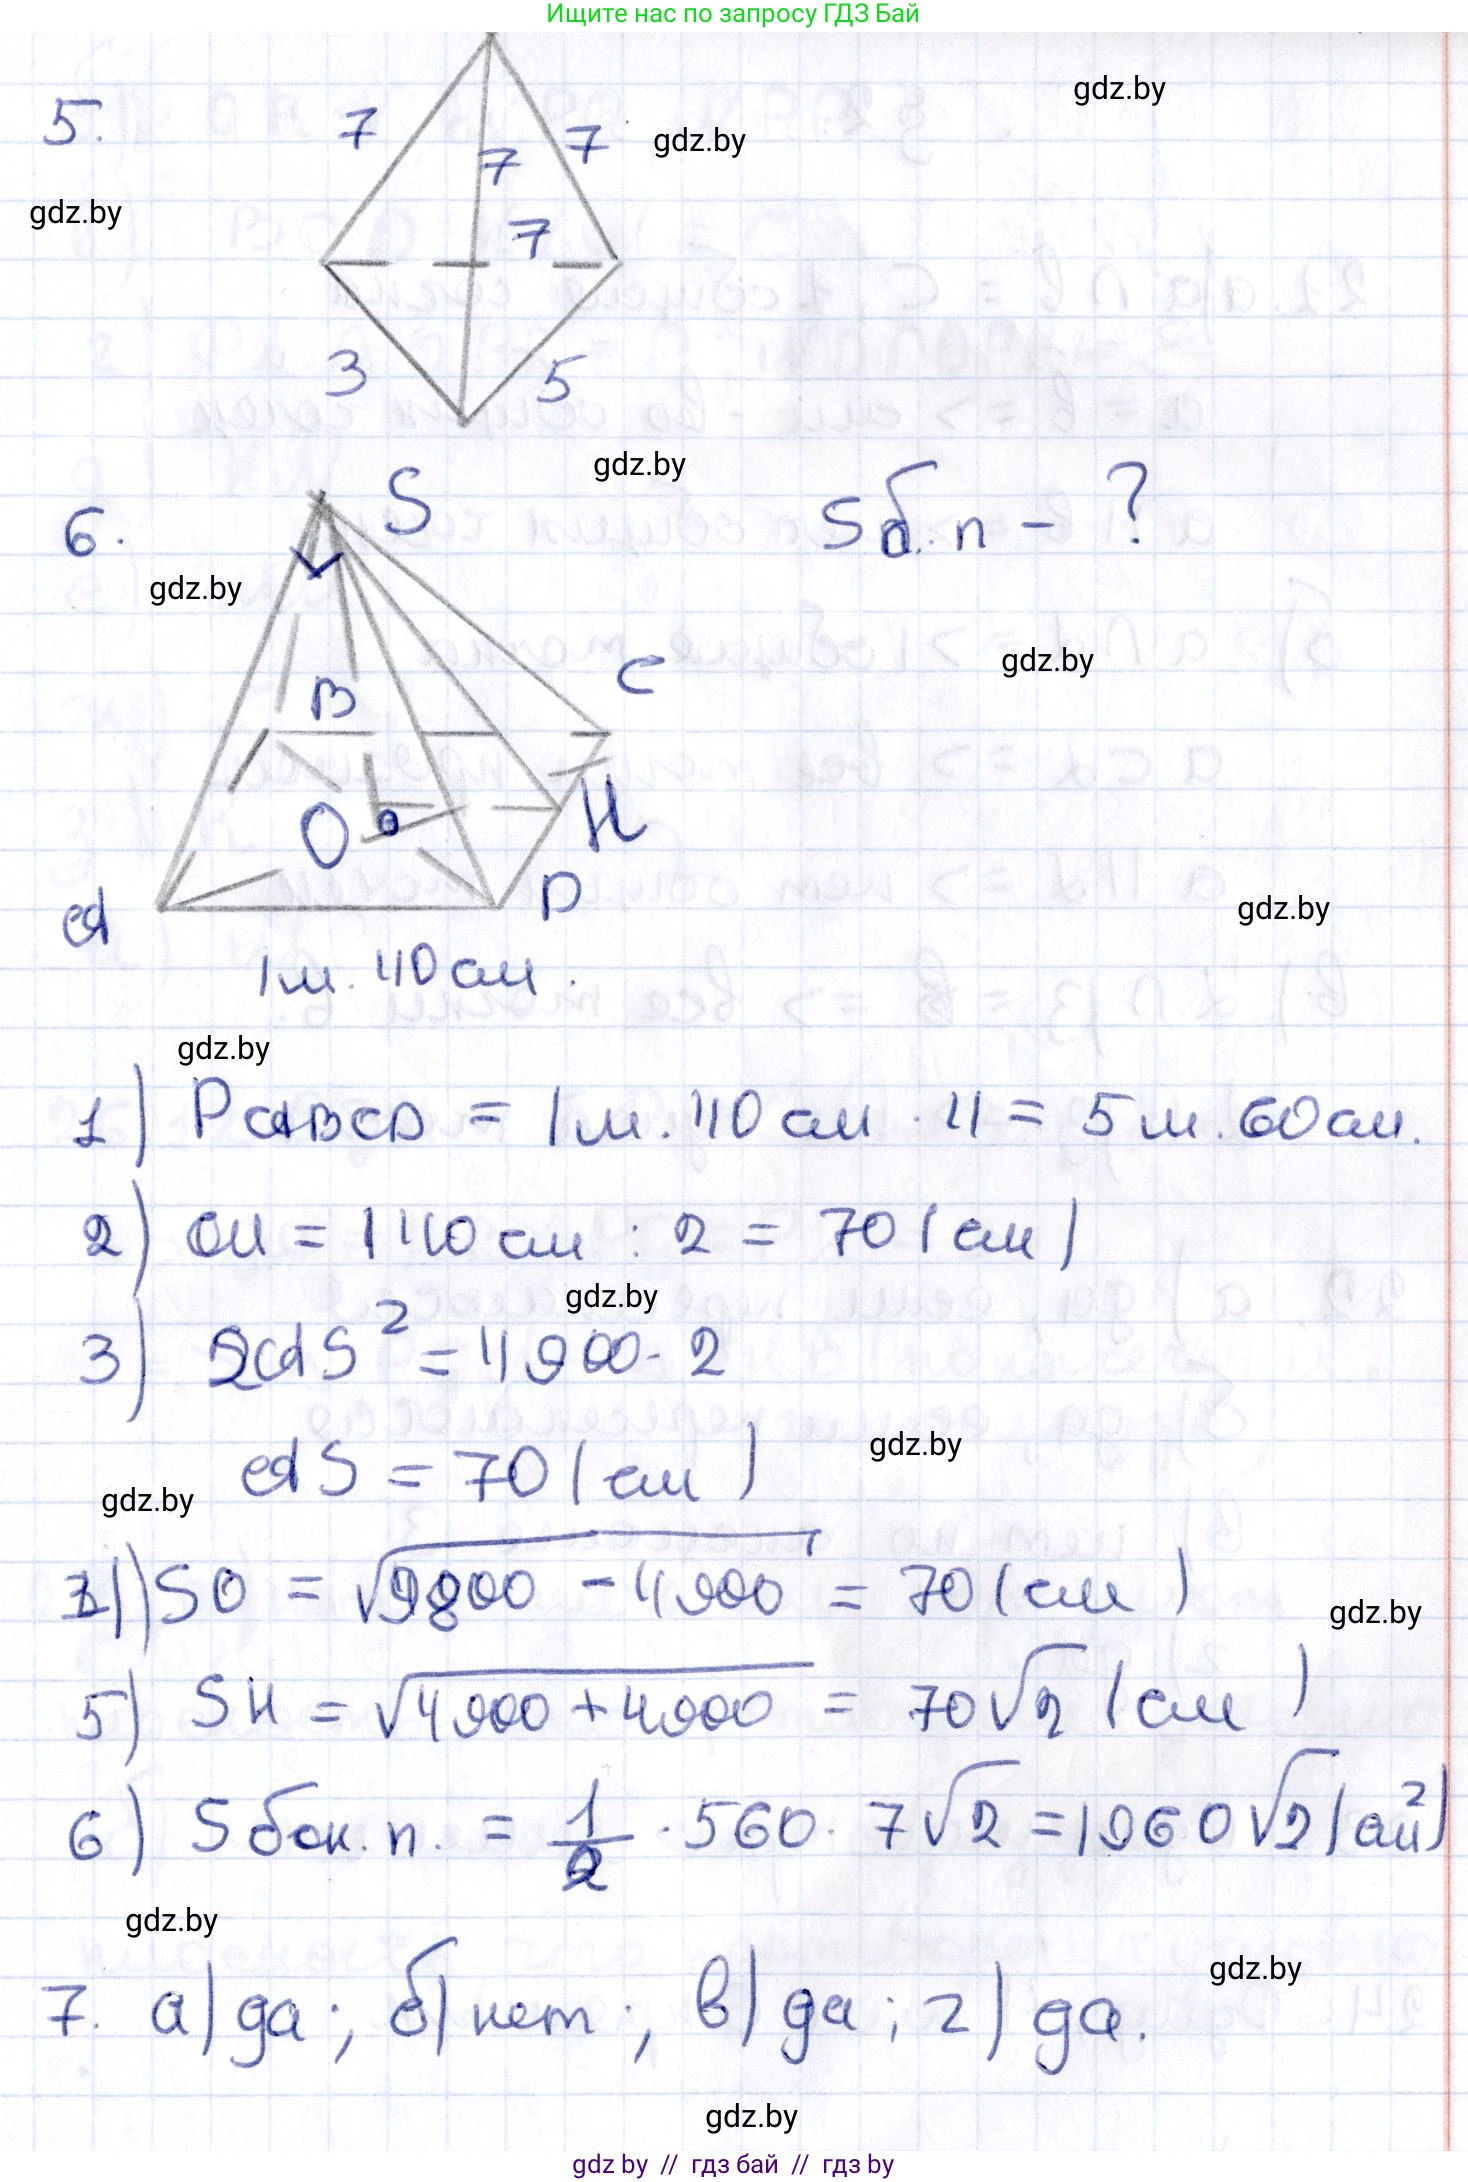 Ищите нас по запросу ГДЗ Бай
gdz.by
5.
7
7
7
gdz.by
gdz.by
7
3
5
gdz.by
6.
S
Sб.п - ?
gdz.by
B
C
gdz.by
O
H
A
D
gdz.by
1м. 40 см.
gdz.by
1) PABCD = 1м. 40 см · 4 = 5м. 60 см.
2) OH = 140 см : 2 = 70 (см)
gdz.by
3) 2AS² = 4900 · 2
AS = 70 (см)
gdz.by
gdz.by
4) SO = √9800 - 4900 = 70 (см)
gdz.by
5) SH = √4900 + 4900 = 70√2 (см)
6) Sбок.п. = 1/2 · 560 · 7√2 = 1960√2 (см²)
gdz.by
gdz.by
7. а) да; б) нет; в) да; г) да.
gdz.by
gdz by // гдз бай // гдз by